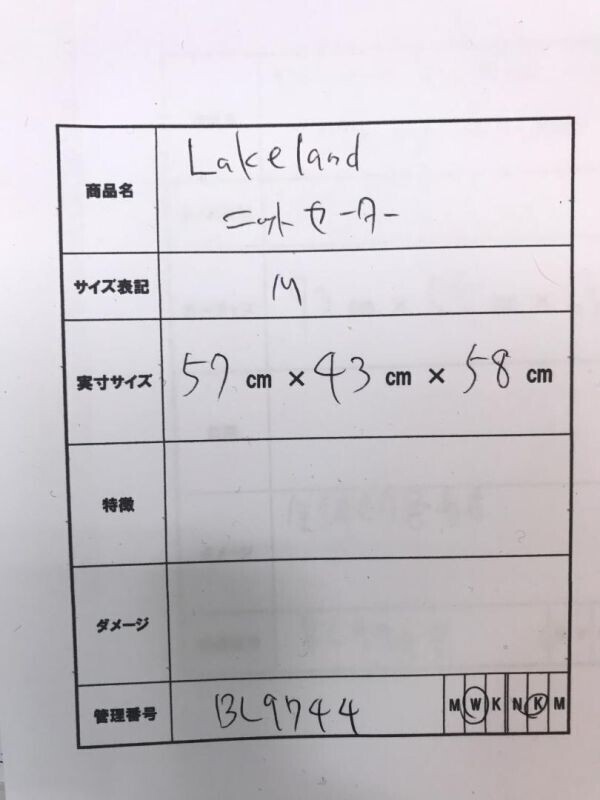 商品名 Lakeland
ニットセーター
サイズ表記 M
実寸サイズ 57 cm × 43 cm × 58 cm
特徴
ダメージ
管理番号 BL9744 M W K N K M